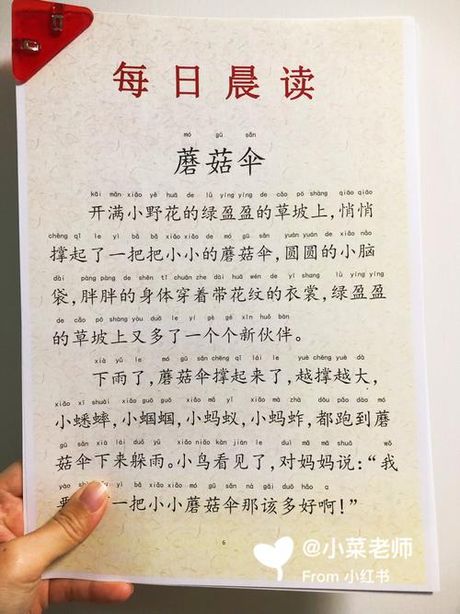 每日晨读
mó gū sǎn
蘑菇伞
kāi mǎn xiǎo yě huā de lǜ yíng yíng de cǎo pō shàng qiāo qiāo
开满小野花的绿盈盈的草坡上，悄悄
chēng qǐ le yì bǎ bǎ xiǎo xiǎo de mó gū sǎn yuán yuán de xiǎo nǎo
撑起了一把把小小的蘑菇伞，圆圆的小脑
dài pàng pàng de shēn tǐ chuān zhe dài huā wén de yī shang lǜ yíng yíng
袋，胖胖的身体穿着带花纹的衣裳，绿盈盈
de cǎo pō shàng yòu duō le yí gè gè xīn huǒ bàn
的草坡上又多了一个个新伙伴。
xià yǔ le mó gū sǎn chēng qǐ lái le yuè chēng yuè dà
下雨了，蘑菇伞撑起来了，越撑越大，
xiǎo xī shuài xiǎo guō guō xiǎo mǎ yǐ xiǎo mà zhà dōu pǎo dào mó
小蟋蟀，小蝈蝈，小蚂蚁，小蚂蚱，都跑到蘑
gū sǎn xià lái duǒ yǔ xiǎo niǎo kàn jiàn le duì mā ma shuō wǒ
菇伞下来躲雨。小鸟看见了，对妈妈说：“我
yào yì bǎ xiǎo xiǎo mó gū sǎn nà gāi duō hǎo a
要一把小小蘑菇伞那该多好啊！”
6
@小菜老师
From 小红书